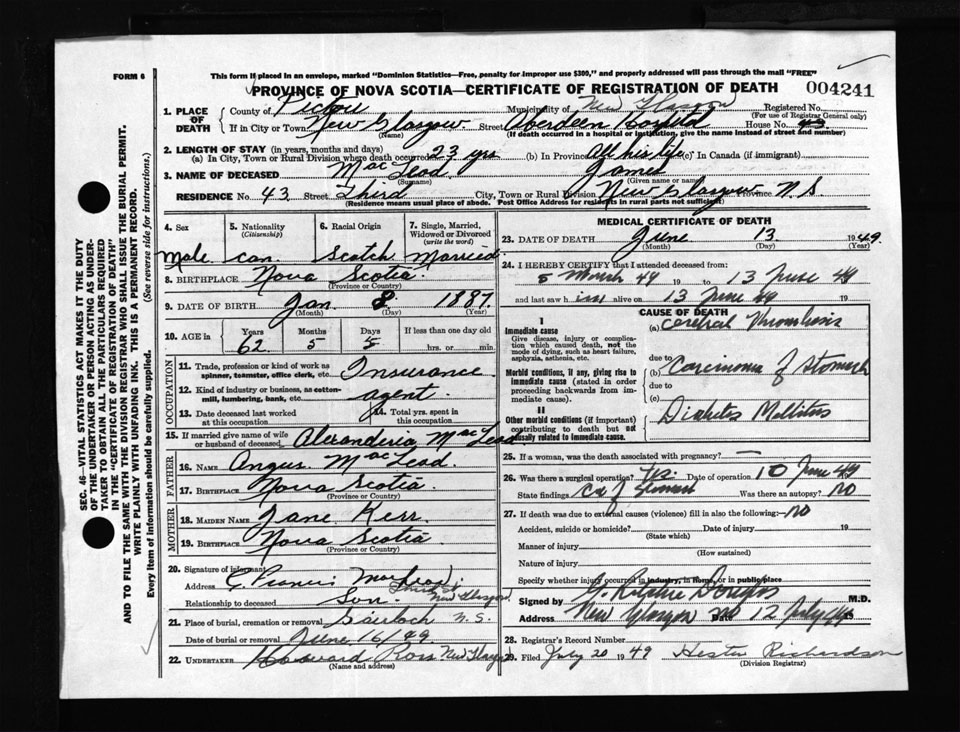 FORM 6
This form if placed in an envelope, marked "Dominion Statistics—Free, penalty for improper use $300," and properly addressed will pass through the mail "FREE"
PROVINCE OF NOVA SCOTIA—CERTIFICATE OF REGISTRATION OF DEATH
004241
1. PLACE OF DEATH
County of Pictou Municipality of New Glasgow Registered No.
(For use of Registrar General only)
If in City or Town New Glasgow Street Aberdeen Hospital House No. 43
(Name) (If death occurred in a hospital or institution, give the name instead of street and number)
2. LENGTH OF STAY (in years, months and days)
(a) In City, Town or Rural Division where death occurred 23 yrs (b) In Province All his life (c) In Canada (if immigrant)
3. NAME OF DECEASED MacLeod James
(Surname) (Given name or names)
RESIDENCE No. 43 Street Third City, Town or Rural Division New Glasgow Province N.S
(Residence means usual place of abode. Post Office Address for residents in rural parts not sufficient)
4. Sex Male
5. Nationality (Citizenship) Can.
6. Racial Origin Scotch
7. Single, Married, Widowed or Divorced (write the word) Married
8. BIRTHPLACE Nova Scotia
(Province or Country)
9. DATE OF BIRTH Jan. 8 1887
(Month) (Day) (Year)
10. AGE in Years Months Days If less than one day old
62 5 5 hrs. or min.
OCCUPATION
11. Trade, profession or kind of work as spinner, teamster, office clerk, etc. Insurance
12. Kind of industry or business, as cotton-mill, lumbering, bank, etc. agent
13. Date deceased last worked at this occupation
14. Total yrs. spent in this occupation
15. If married give name of wife or husband of deceased Alexanderia MacLeod
FATHER
16. NAME Angus MacLeod.
17. BIRTHPLACE Nova Scotia
(Province or Country)
MOTHER
18. MAIDEN NAME Jane Kerr.
19. BIRTHPLACE Nova Scotia
(Province or Country)
20. Signature of informant
Address Francis MacLeod. New Glasgow
Relationship to deceased Son.
21. Place of burial, cremation or removal N.S.
Date of burial or removal June 16/49.
22. UNDERTAKER Ross New Glasgow
(Name and address)
MEDICAL CERTIFICATE OF DEATH
23. DATE OF DEATH June 13 1949.
(Month) (Day) (Year)
24. I HEREBY CERTIFY that I attended deceased from:
5 March 49 19 to 13 June 49
and last saw him alive on 13 June 49 19
CAUSE OF DEATH
I
Immediate cause
Give disease, injury or complication which caused death, not the mode of dying, such as heart failure, asphyxia, asthenia, etc.
(a) Cerebral Thrombosis
due to
Morbid conditions, if any, giving rise to immediate cause (stated in order proceeding backwards from immediate cause).
(b) Carcinoma of Stomach
due to
(c)
II
Other morbid conditions (if important) contributing to death but not causally related to immediate cause.
Diabetes Mellitus
25. If a woman, was the death associated with pregnancy?
26. Was there a surgical operation? Yes. Date of operation 10 June 49
State findings Ca of Stomach Was there an autopsy? No
27. If death was due to external causes (violence) fill in also the following:— No
Accident, suicide or homicide? Date of injury 19
(State which)
Manner of injury
(How sustained)
Nature of injury
Specify whether injury occurred in industry, in home, or in public place
Signed by G. Ritchie Douglas M.D.
Address New Glasgow Date 12 July 49
28. Registrar's Record Number
29. Filed July 20 1949 Hester Richardson
(Division Registrar)
SEC. 46—VITAL STATISTICS ACT MAKES IT THE DUTY OF THE UNDERTAKER OR PERSON ACTING AS UNDERTAKER TO OBTAIN ALL THE PARTICULARS REQUIRED IN THE "CERTIFICATE OF REGISTRATION OF DEATH" AND TO FILE THE SAME WITH THE DIVISION REGISTRAR WHO SHALL ISSUE THE BURIAL PERMIT.
WRITE PLAINLY WITH UNFADING INK. THIS IS A PERMANENT RECORD.
Every item of information should be carefully supplied. (See reverse side for instructions.)